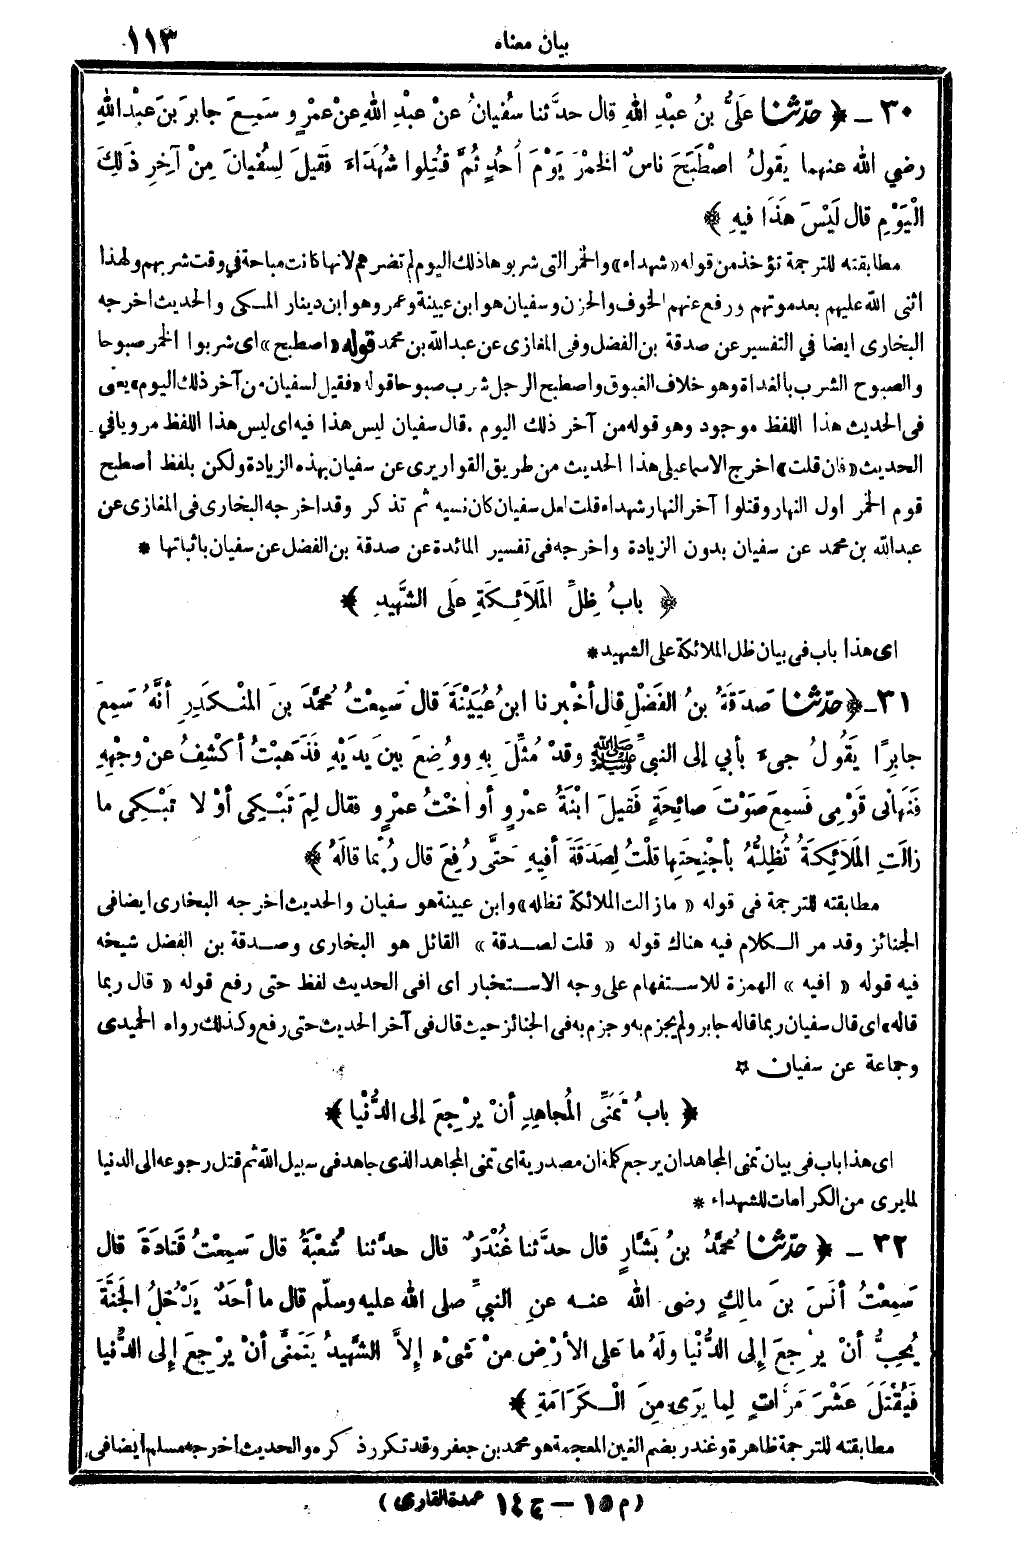 ١١٣
بيان معناه
٣٠ ـ ﴿ حدّثنا عَلىُّ بنُ عبْدِ اللهِ قال حدَّثنا سُفْيانُ عنْ عبْدِ اللهِ عنْ عمْرٍ و سَمِعَ جابرَ بنَ عبْدِ اللهِ
رضي الله عنهما يَقولُ اصْطَبَحَ ناسٌ الخمْرَ يَوْمَ أُحُدٍ ثُمَّ قُتِلوا شُهَدَاءَ فَقيلَ لِسُفْيانَ مِنْ آخِرِ ذَلِكَ
الْيَوْمِ قال لَيْسَ هَذَا فيهِ ﴾
مطابقته للترجمة تؤخذ من قوله «شهداء» والخمر التى شربوها ذلك اليوم لم تضرهم لانها كانت مباحة في وقت شربهم ولهذا
اثنى الله عليهم بعد موتهم ورفع عنهم الخوف والحزن وسفيان هو ابن عيينة وعمر وهو ابن دينار المكى والحديث اخرجه
البخارى ايضا في التفسير عن صدقة بن الفضل وفى المغازى عن عبدالله بن محمد قوله «اصطبح» اى شربوا الخمر صبوحا
والصبوح الشرب بالغداة وهو خلاف الغبوق واصطبح الرجل شرب صبوحا قوله «فقيل لسفيان من آخر ذلك اليوم» يعنى
فى الحديث هذا اللفظ موجود وهو قوله من آخر ذلك اليوم . قال سفيان ليس هذا فيه اى ليس هذا اللفظ مرويا في
الحديث «فان قلت» اخرج الاسماعيلى هذا الحديث من طريق القواريرى عن سفيان بهذه الزيادة ولكن بلفظ اصطبح
قوم الخمر اول النهار وقتلوا آخر النهار شهداء قلت لعل سفيان كان نسيه ثم تذكر وقد اخرجه البخارى فى المغازى عن
عبدالله بن محمد عن سفيان بدون الزيادة واخرجه فى تفسير المائدة عن صدقة بن الفضل عن سفيان باثباتها *
﴿ بابُ ظِلِّ المَلاَئِكَةِ عَلَى الشَّهِيدِ ﴾
اى هذا باب فى بيان ظل الملائكة على الشهيد *
٣١ ـ ﴿ حدّثنا صَدَقَةُ بنُ الفَضْلِ قال أخْبرنا ابنُ عُيَيْنَةَ قال سَمِعْتُ مُحَمَّدَ بنَ المنْكَدِرِ أنَّهُ سَمِعَ
جابِرًا يَقُولُ جىءَ بأبي إلى النبىِّ ﷺ وقدْ مُثِّلَ بِهِ ووُضِعَ بينَ يدَيْهِ فَذَهَبْتُ أكْشِفُ عنْ وجْهِهِ
فَنَهانى قَوْمِى فَسَمِعَ صَوْتَ صائِحَةٍ فَقيلَ ابْنَةُ عمْرٍو أو اخْتُ عمْرٍو فقال لِمَ تَبْكِى أوْ لا تَبْكِى ما
زالَتِ المَلاَئِكَةُ تُظِلُّهُ بأجْنِحَتِها قلْتُ لِصَدَقَةَ أفيهِ حَتَّى رُفِعَ قال رُبَّما قالَهُ ﴾
مطابقته للترجمة فى قوله « مازالت الملائكة تظله» وابن عيينة هو سفيان والحديث اخرجه البخارى ايضا فى
الجنائز وقد مر الكلام فيه هناك قوله « قلت لصدقة » القائل هو البخارى وصدقة بن الفضل شيخه
فيه قوله « افيه » الهمزة للاستفهام على وجه الاستخبار اى افى الحديث لفظ حتى رفع قوله « قال ربما
قاله» اى قال سفيان ربما قاله جابر ولم يجزم به وجزم به فى الجنائز حيث قال فى آخر الحديث حتى رفع وكذلك رواه الحميدى
وجماعة عن سفيان ☆
﴿ بابُ تَمَنِّى المُجاهِدِ أنْ يرْجِعَ إلى الدُّنْيا ﴾
اى هذا باب فى بيان تمنى المجاهد ان يرجع كلمة ان مصدرية اى تمنى المجاهد الذى جاهد فى سبيل الله ثم قتل رجوعه الى الدنيا
لما يرى من الكرامات للشهداء *
٣٢ ـ ﴿ حدّثنا مُحمَّدُ بنُ بَشَّارٍ قال حدَّثنا غُنْدَرٌ قال حدَّثنا شُعْبَةُ قال سَمِعْتُ قَتادَةَ قال
سَمِعْتُ أنَسَ بنَ مالِكٍ رضى الله عنه عنِ النبيِّ صلى الله عليه وسلّم قال ما أحَدٌ يَدْخُلُ الجَنَّةَ
يُحِبُّ أنْ يرْجِعَ إلى الدُّنْيا ولَهُ ما عَلى الأرْضِ منْ شَىْءٍ إلاَّ الشَّهِيدُ يَتَمَنَّى أنْ يرْجِعَ إلى الدُّنيا
فَيُقْتَلَ عَشْرَ مَرَّاتٍ لِما يَرَى مِنَ الْكَرَامَةِ ﴾
مطابقته للترجمة ظاهرة وغندر بضم الغين المعجمة هو محمد بن جعفر وقد تكرر ذكره والحديث اخرجه مسلم ايضا فى
( م ١٥ ـ ج ١٤ عمدة القارى )